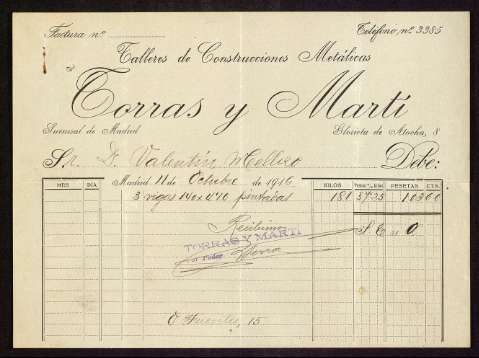 Factura nº
Teléfono nº 3385
Talleres de Construcciones Metálicas
Torras y Martí
Sucursal de Madrid
Glorieta de Atocha, 8
Sr. D. Valentín
Debe:
MES DIA Madrid 11 de Octubre de 1916 KILOS PESETAS CTS.
3 vigas 140 x 4'10 pintadas 181 57'25 103 60
Recibimos
S. E. u O.
TORRAS Y MARTÍ
Fuentes, 15